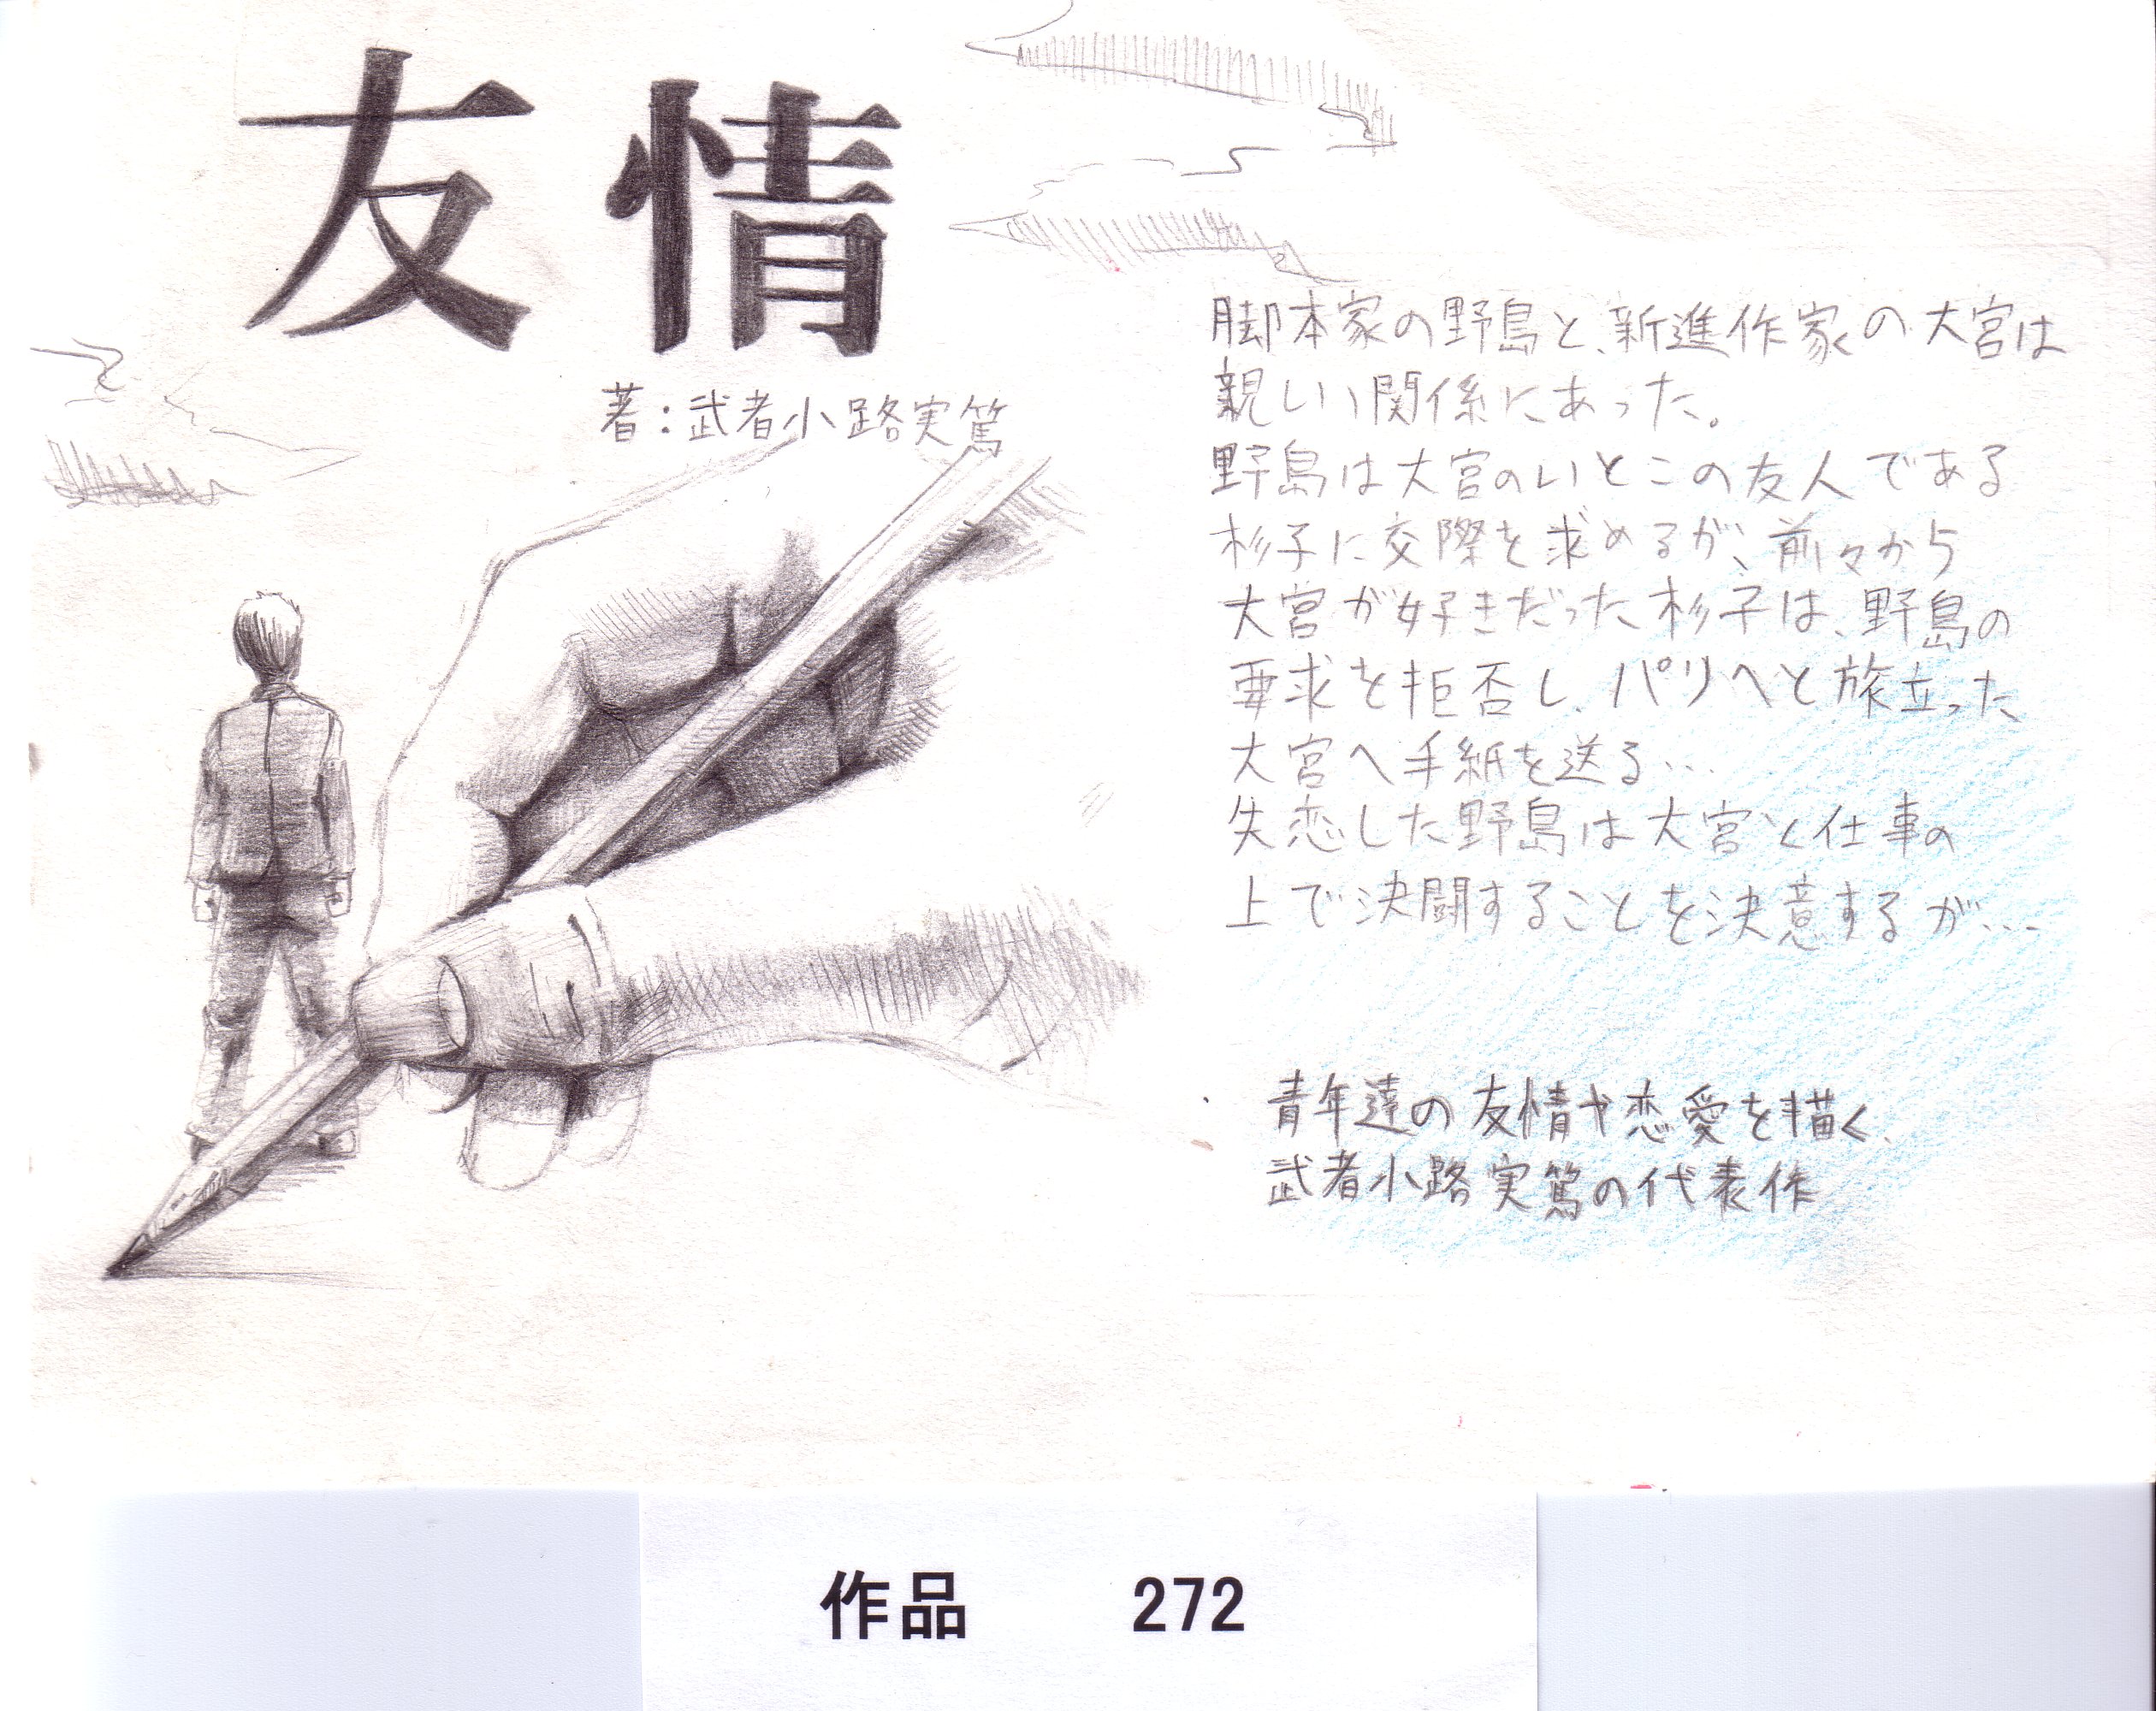 友情
著:武者小路実篤
脚本家の野島と、新進作家の大宮は
親しい関係にあった。
野島は大宮のいとこの友人である
杉子に交際を求めるが、前々から
大宮が好きだった杉子は、野島の
要求を拒否し、パリへと旅立った
大宮へ手紙を送る…
失恋した野島は大宮と仕事の
上で決闘することを決意するが…
青年達の友情や恋愛を描く、
武者小路実篤の代表作
作品 272